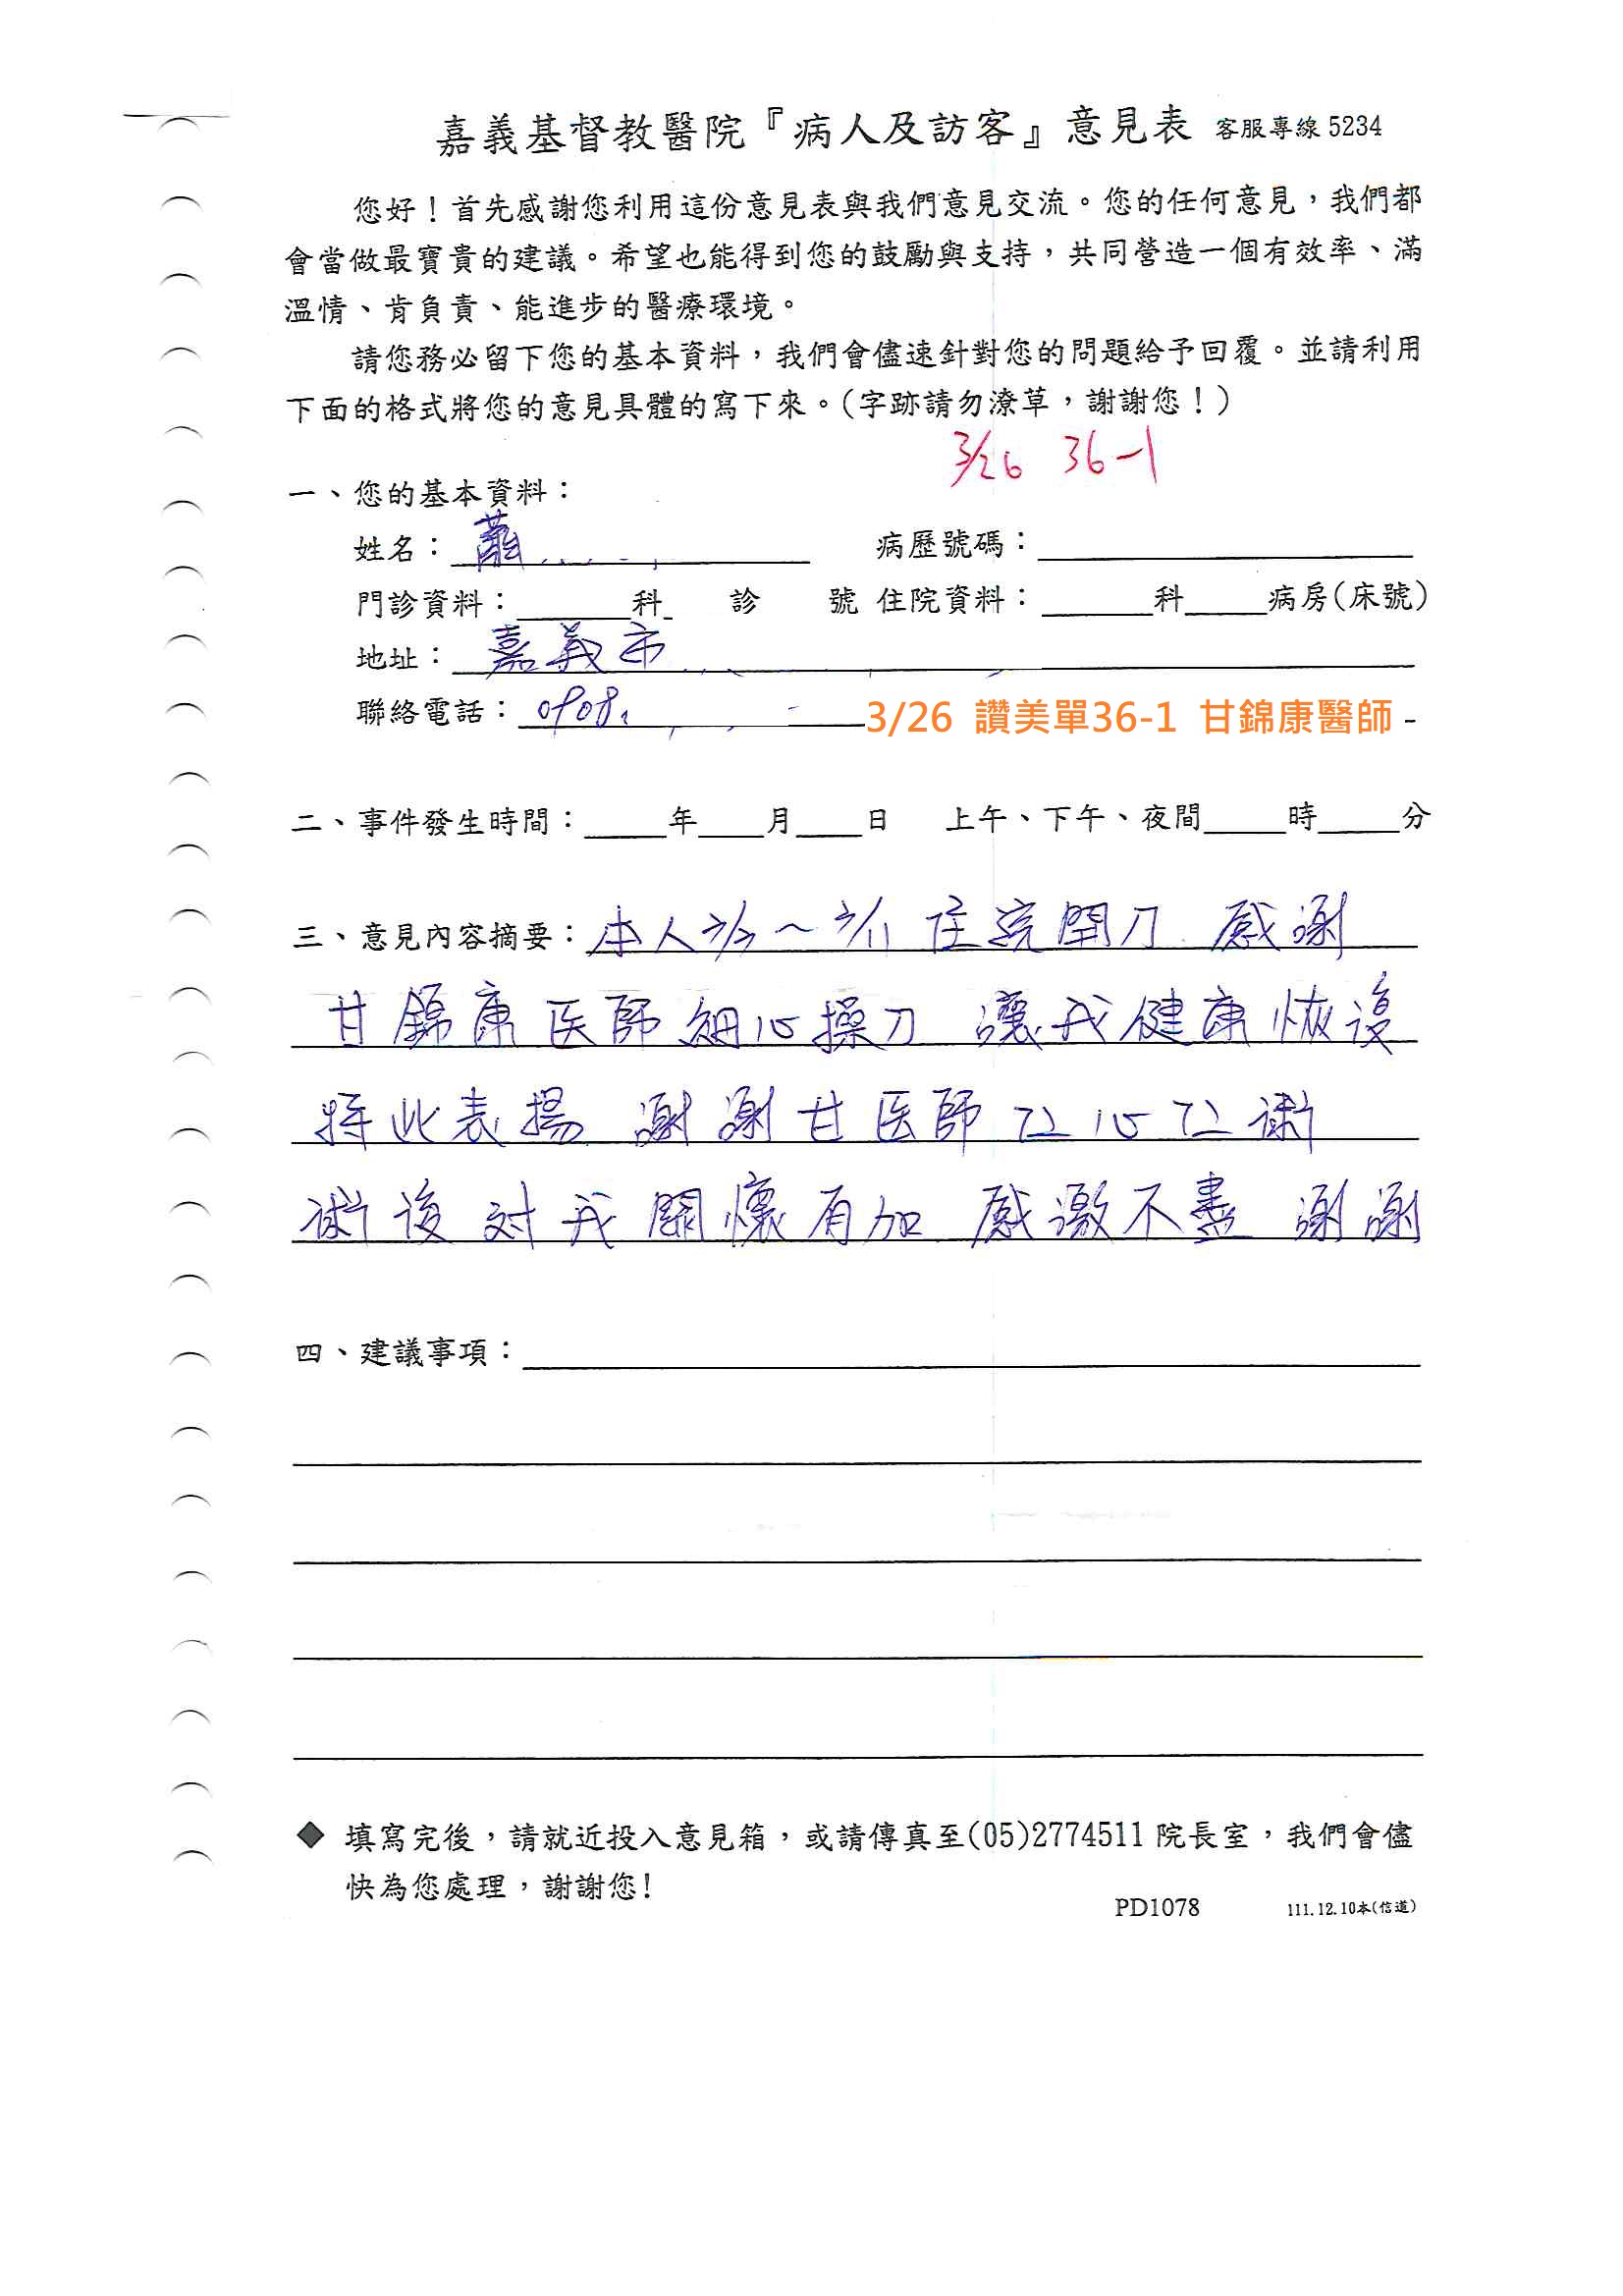 嘉義基督教醫院『病人及訪客』意見表 客服專線 5234
您好！首先感謝您利用這份意見表與我們意見交流。您的任何意見，我們都
會當做最寶貴的建議。希望也能得到您的鼓勵與支持，共同營造一個有效率、滿
溫情、肯負責、能進步的醫療環境。
請您務必留下您的基本資料，我們會儘速針對您的問題給予回覆。並請利用
下面的格式將您的意見具體的寫下來。(字跡請勿潦草，謝謝您！)
3/26 36-1
一、您的基本資料：
姓名：蕭 病歷號碼：
門診資料：科 診 號 住院資料：科 病房(床號)
地址：嘉義市
聯絡電話：0908 3/26 讚美單36-1 甘錦康醫師
二、事件發生時間：年 月 日 上午、下午、夜間 時 分
三、意見內容摘要：本人 ~ 3/11 住院開刀 感謝
甘錦康医師細心操刀 讓我健康恢復
特此表揚 謝謝甘医師仁心仁術
術後对我關懷有加 感激不盡 謝謝
四、建議事項：
◆ 填寫完後，請就近投入意見箱，或請傳真至(05)2774511 院長室，我們會儘
快為您處理，謝謝您!
PD1078 111.12.10本(信道)